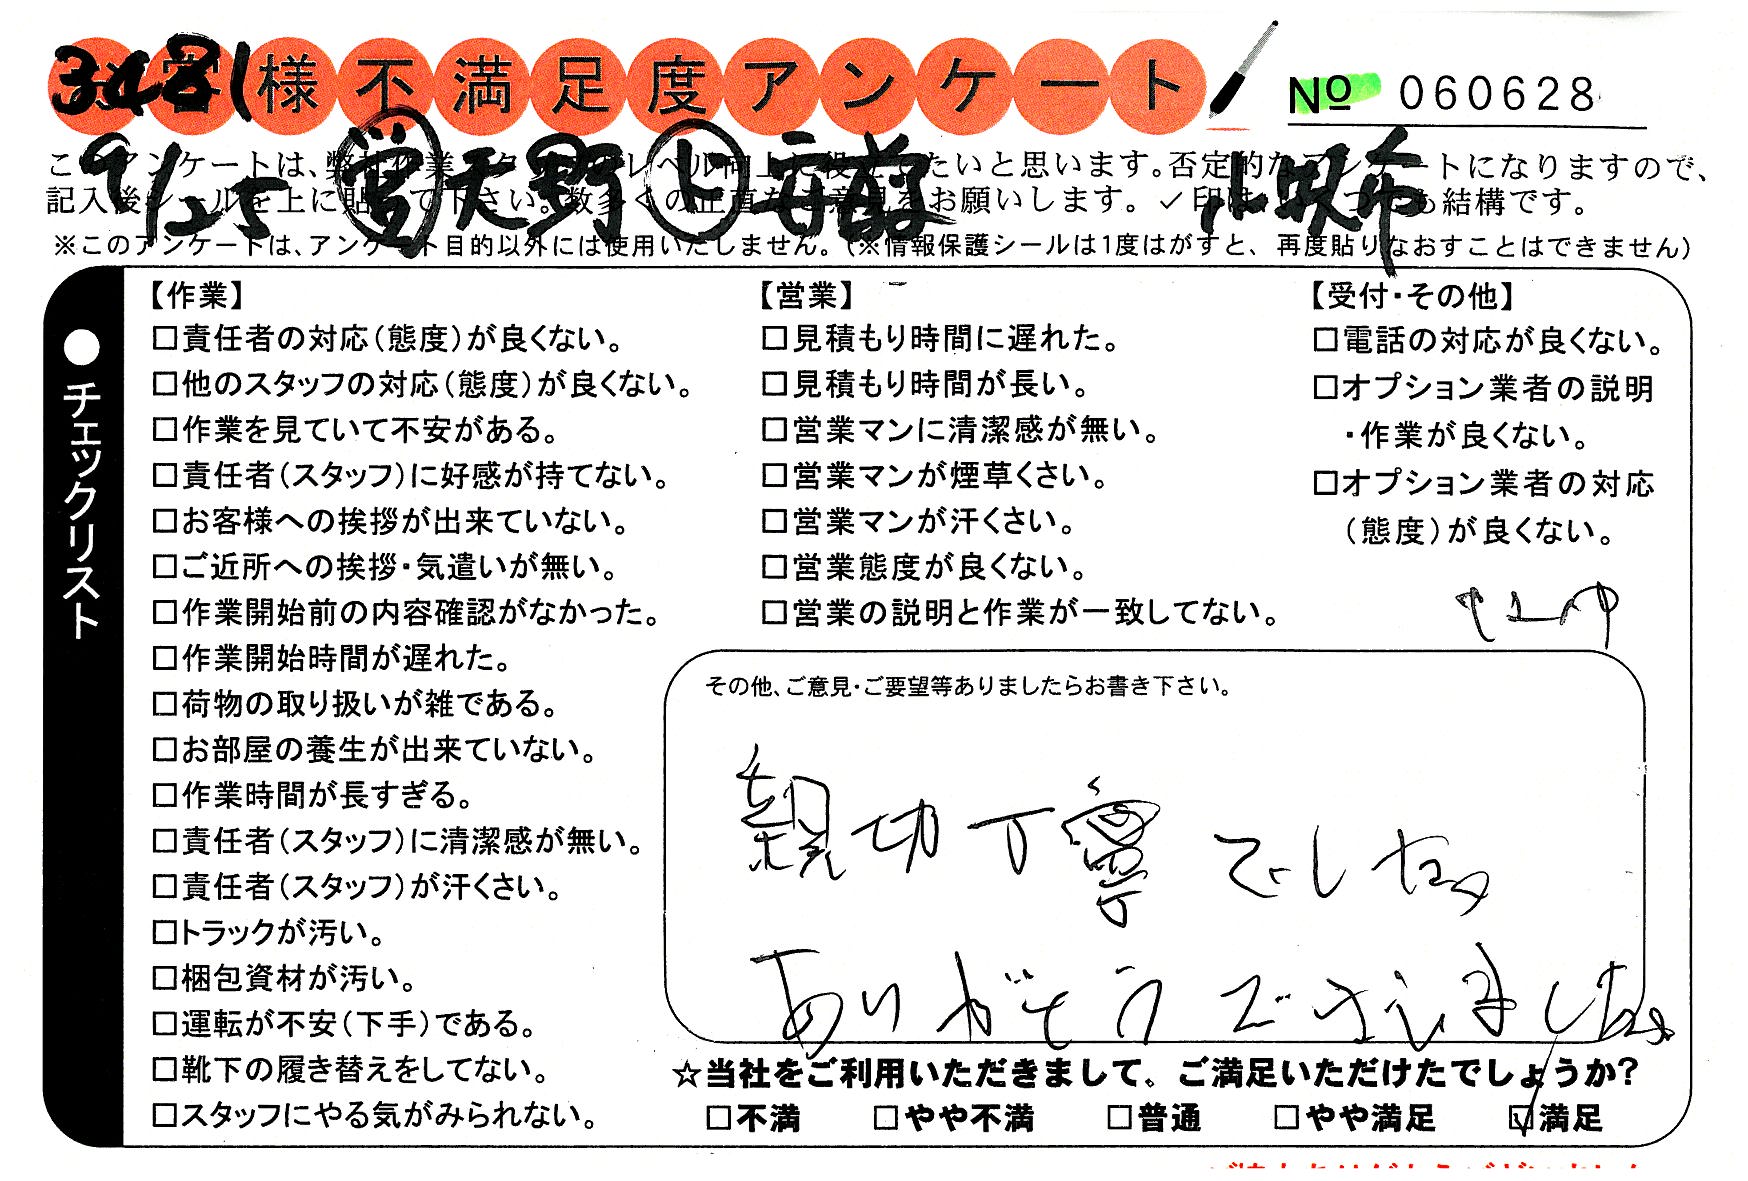 3481 様不満足度アンケート
№ 060628
9/25 営 天野 ト 安藤
このアンケートは、弊社作業スタッフのレベル向上に役立てたいと思います。否定的なアンケートになりますので、
記入後シールを上に貼って下さい。数多くの正直なご意見をお願いします。✓印はいくつでも結構です。
※このアンケートは、アンケート目的以外には使用いたしません。(※情報保護シールは1度はがすと、再度貼りなおすことはできません)
●チェックリスト
【作業】
□責任者の対応(態度)が良くない。
□他のスタッフの対応(態度)が良くない。
□作業を見ていて不安がある。
□責任者(スタッフ)に好感が持てない。
□お客様への挨拶が出来ていない。
□ご近所への挨拶・気遣いが無い。
□作業開始前の内容確認がなかった。
□作業開始時間が遅れた。
□荷物の取り扱いが雑である。
□お部屋の養生が出来ていない。
□作業時間が長すぎる。
□責任者(スタッフ)に清潔感が無い。
□責任者(スタッフ)が汗くさい。
□トラックが汚い。
□梱包資材が汚い。
□運転が不安(下手)である。
□靴下の履き替えをしてない。
□スタッフにやる気がみられない。
【営業】
□見積もり時間に遅れた。
□見積もり時間が長い。
□営業マンに清潔感が無い。
□営業マンが煙草くさい。
□営業マンが汗くさい。
□営業態度が良くない。
□営業の説明と作業が一致してない。
【受付・その他】
□電話の対応が良くない。
□オプション業者の説明
・作業が良くない。
□オプション業者の対応
(態度)が良くない。
その他、ご意見・ご要望等ありましたらお書き下さい。
親切丁寧でした
ありがとうございました
☆当社をご利用いただきまして、ご満足いただけたでしょうか?
□不満 □やや不満 □普通 □やや満足 ☑満足